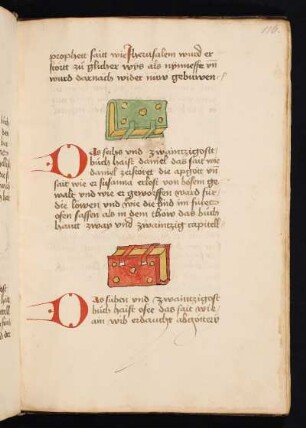 116.
prophett sait wie Jherusalem wurd er
stortt zů glicher wys als nynnefe vn
ward darnach wider nuw gebuwen
Das sechs vnd zwaintzigost
bůch haist daniel das sait wie
daniel zerstoret die apgott vn
sait wie er susanna erlost von bosem ge
walt vnd wie er geworffen ward fur
die lowen vnd wie die kind im fuwr
ofen sassen als in dem thow das bůch
haut zway vnd zwaintzig capittell
Das suben vnd zwaintzigost
bůch haist osee das sait wie
ain wib erdaucht abgottery